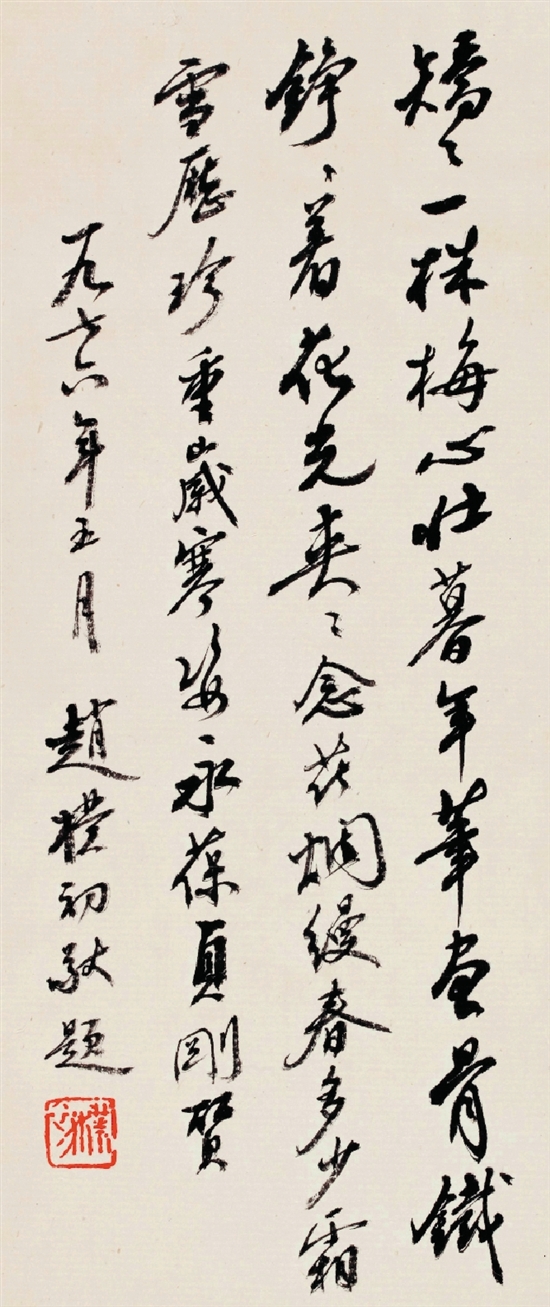 矯々一株梅心壯暮年筆畫骨鐵
錚々着花光奕々念茲爛縵春多少霜
雪歷珍重歲寒姿永葆貞剛質
一九七六年五月 趙樸初敬題